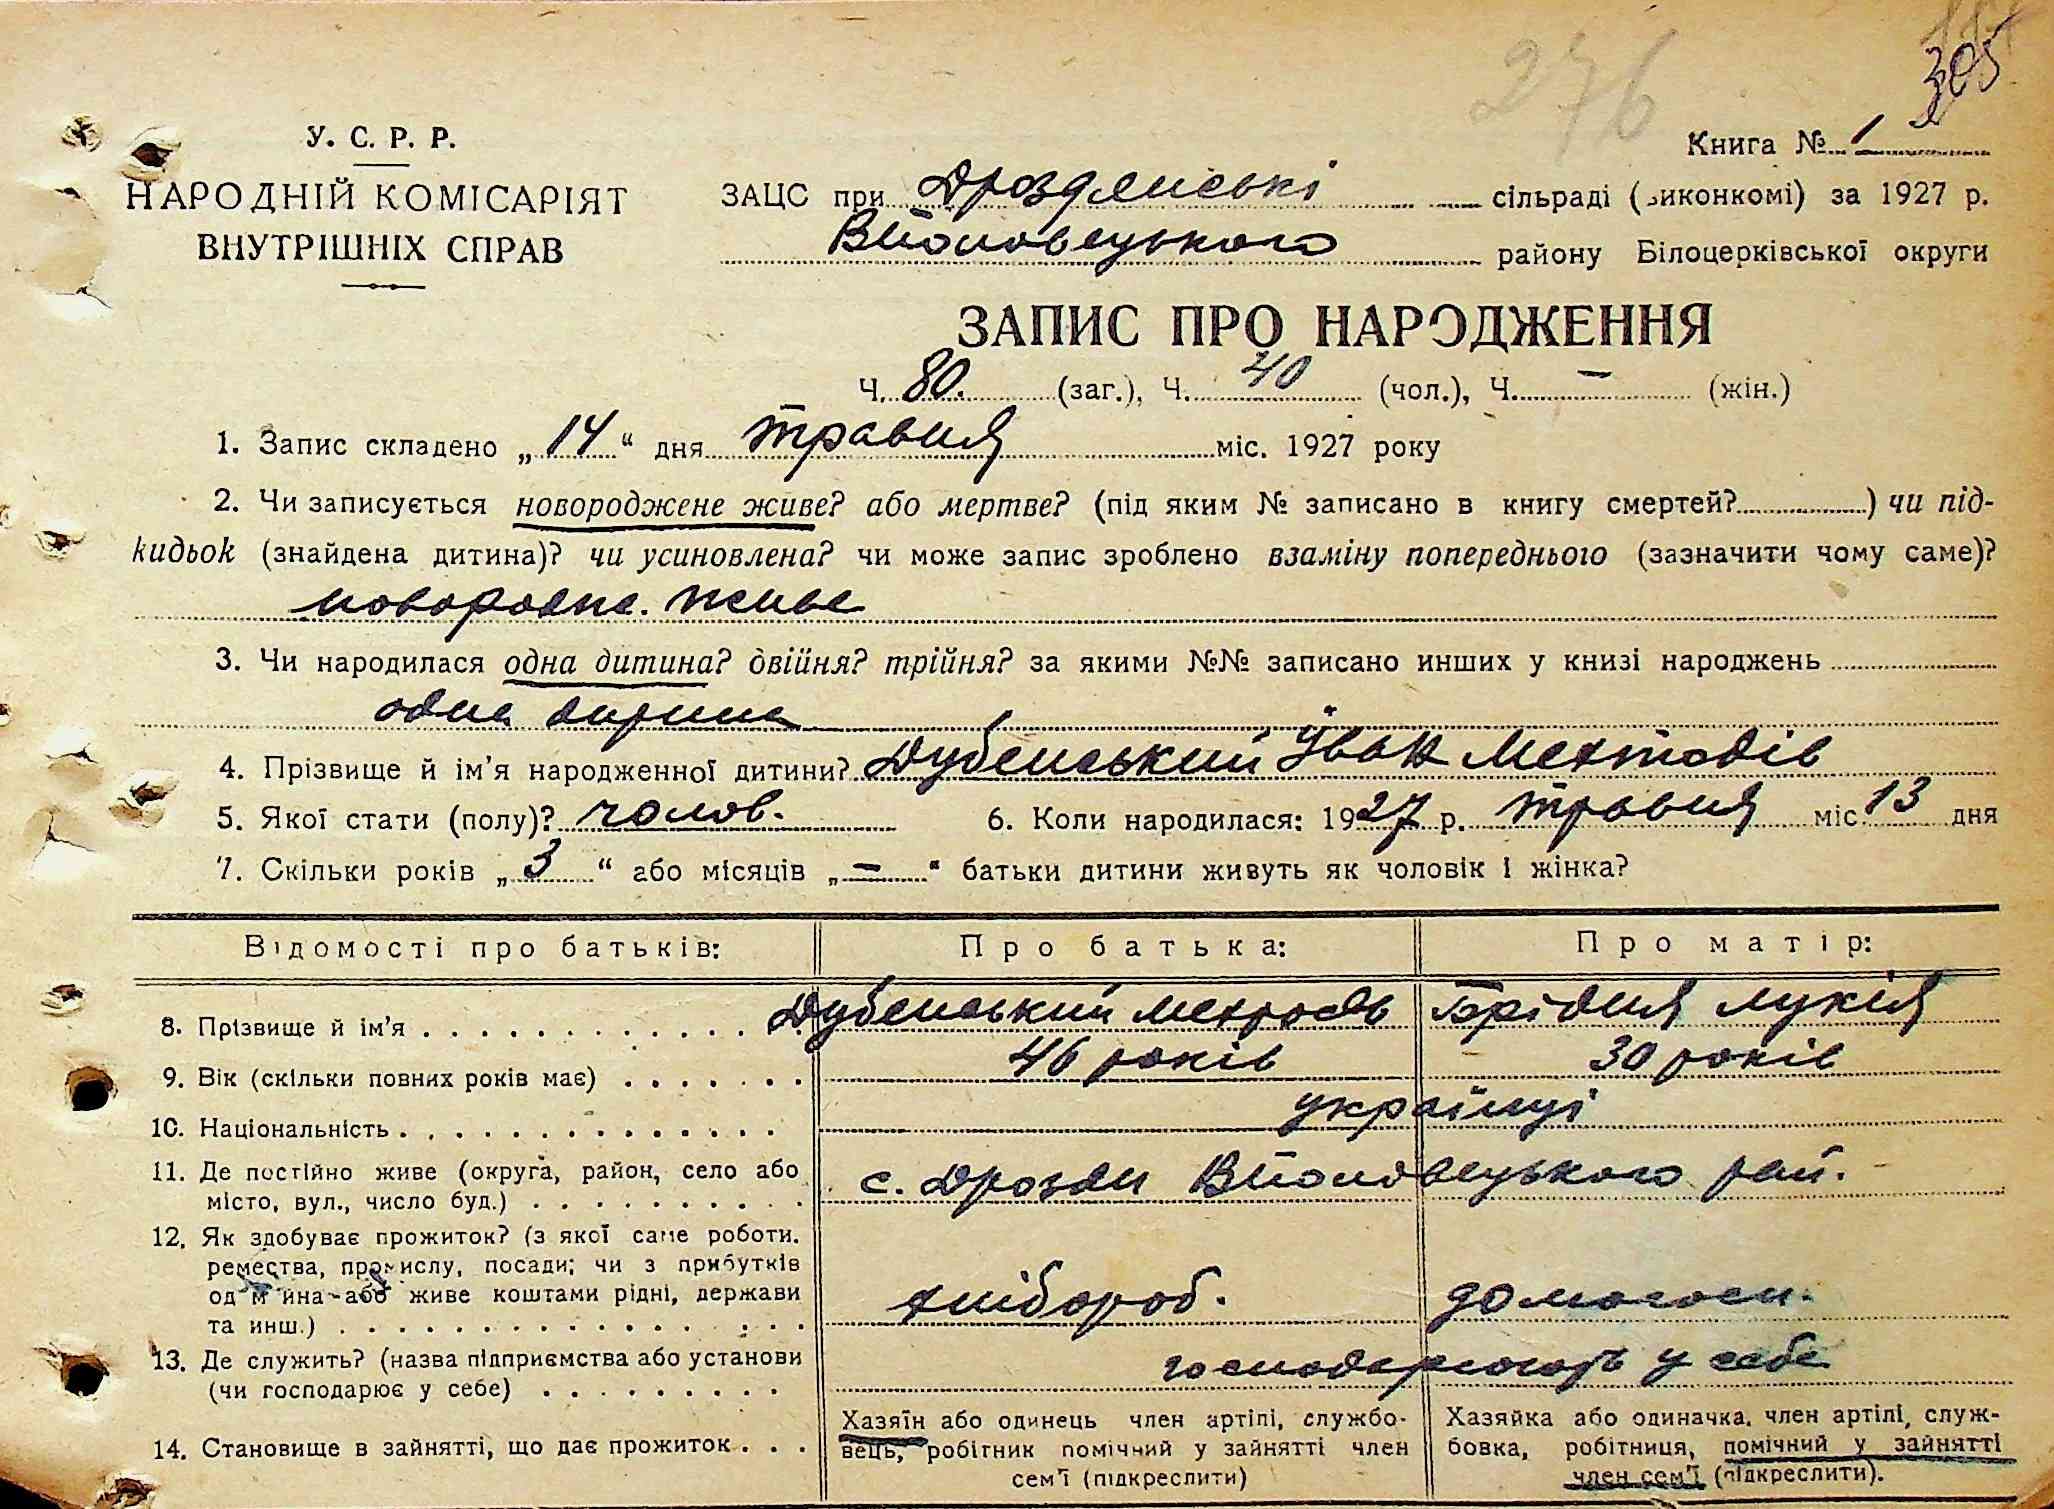 276
305
У. С. Р. Р.
Книга № 1
НАРОДНІЙ КОМІСАРІЯТ
ВНУТРІШНІХ СПРАВ
ЗАЦС при Дроздянські сільраді (виконкомі) за 1927 р.
району Білоцерківської округи
ЗАПИС ПРО НАРОДЖЕННЯ
Ч. 80. (заг.), Ч. 40 (чол.), Ч. – (жін.)
1. Запис складено „ 14 “ дня травня міс. 1927 року
2. Чи записується новороджене живе? або мертве? (під яким № записано в книгу смертей? ) чи під-
кидьок (знайдена дитина)? чи усиновлена? чи може запис зроблено взаміну попереднього (зазначити чому саме)?
новородже. живе
3. Чи народилася одна дитина? двійня? трійня? за якими №№ записано инших у книзі народжень
одна дитина
4. Прізвище й ім’я народженної дитини? Дубенський Іван Мехтодів
5. Якої стати (полу)? чолов. 6. Коли народилася: 1927 р. травня міс. 13 дня
7. Скільки років „ 3 “ або місяців „ – “ батьки дитини живуть як чоловік і жінка?
Відомості про батьків: Про батька: Про матір:
8. Прізвище й ім’я . . . . . . . . . . . . . Дубенський Мехтодь Брідня Лукія
9. Вік (скільки повних років має) . . . . . . . 46 років 30 років
10. Національність . . . . . . . . . . . . . . . українці
11. Де постійно живе (округа, район, село або
місто, вул., число буд.) . . . . . . . . . . . с. Дрозди рай.
12. Як здобуває прожиток? (з якої саме роботи.
ремества, промислу, посади; чи з прибутків
од майна або живе коштами рідні, держави
та инш.) . . . . . . . . . . . . . . . . . хлібороб. домогосп.
13. Де служить? (назва підприємства або установи
(чи господарює у себе) . . . . . . . . . господарюють у себе
14. Становище в зайнятті, що дає прожиток . . .
Хазяїн або одинець член артілі, службо-
вець, робітник помічний у зайнятті член
сем’ї (підкреслити)
Хазяйка або одиначка, член артілі, служ-
бовка, робітниця, помічний у зайнятті
член сем’ї (підкреслити).